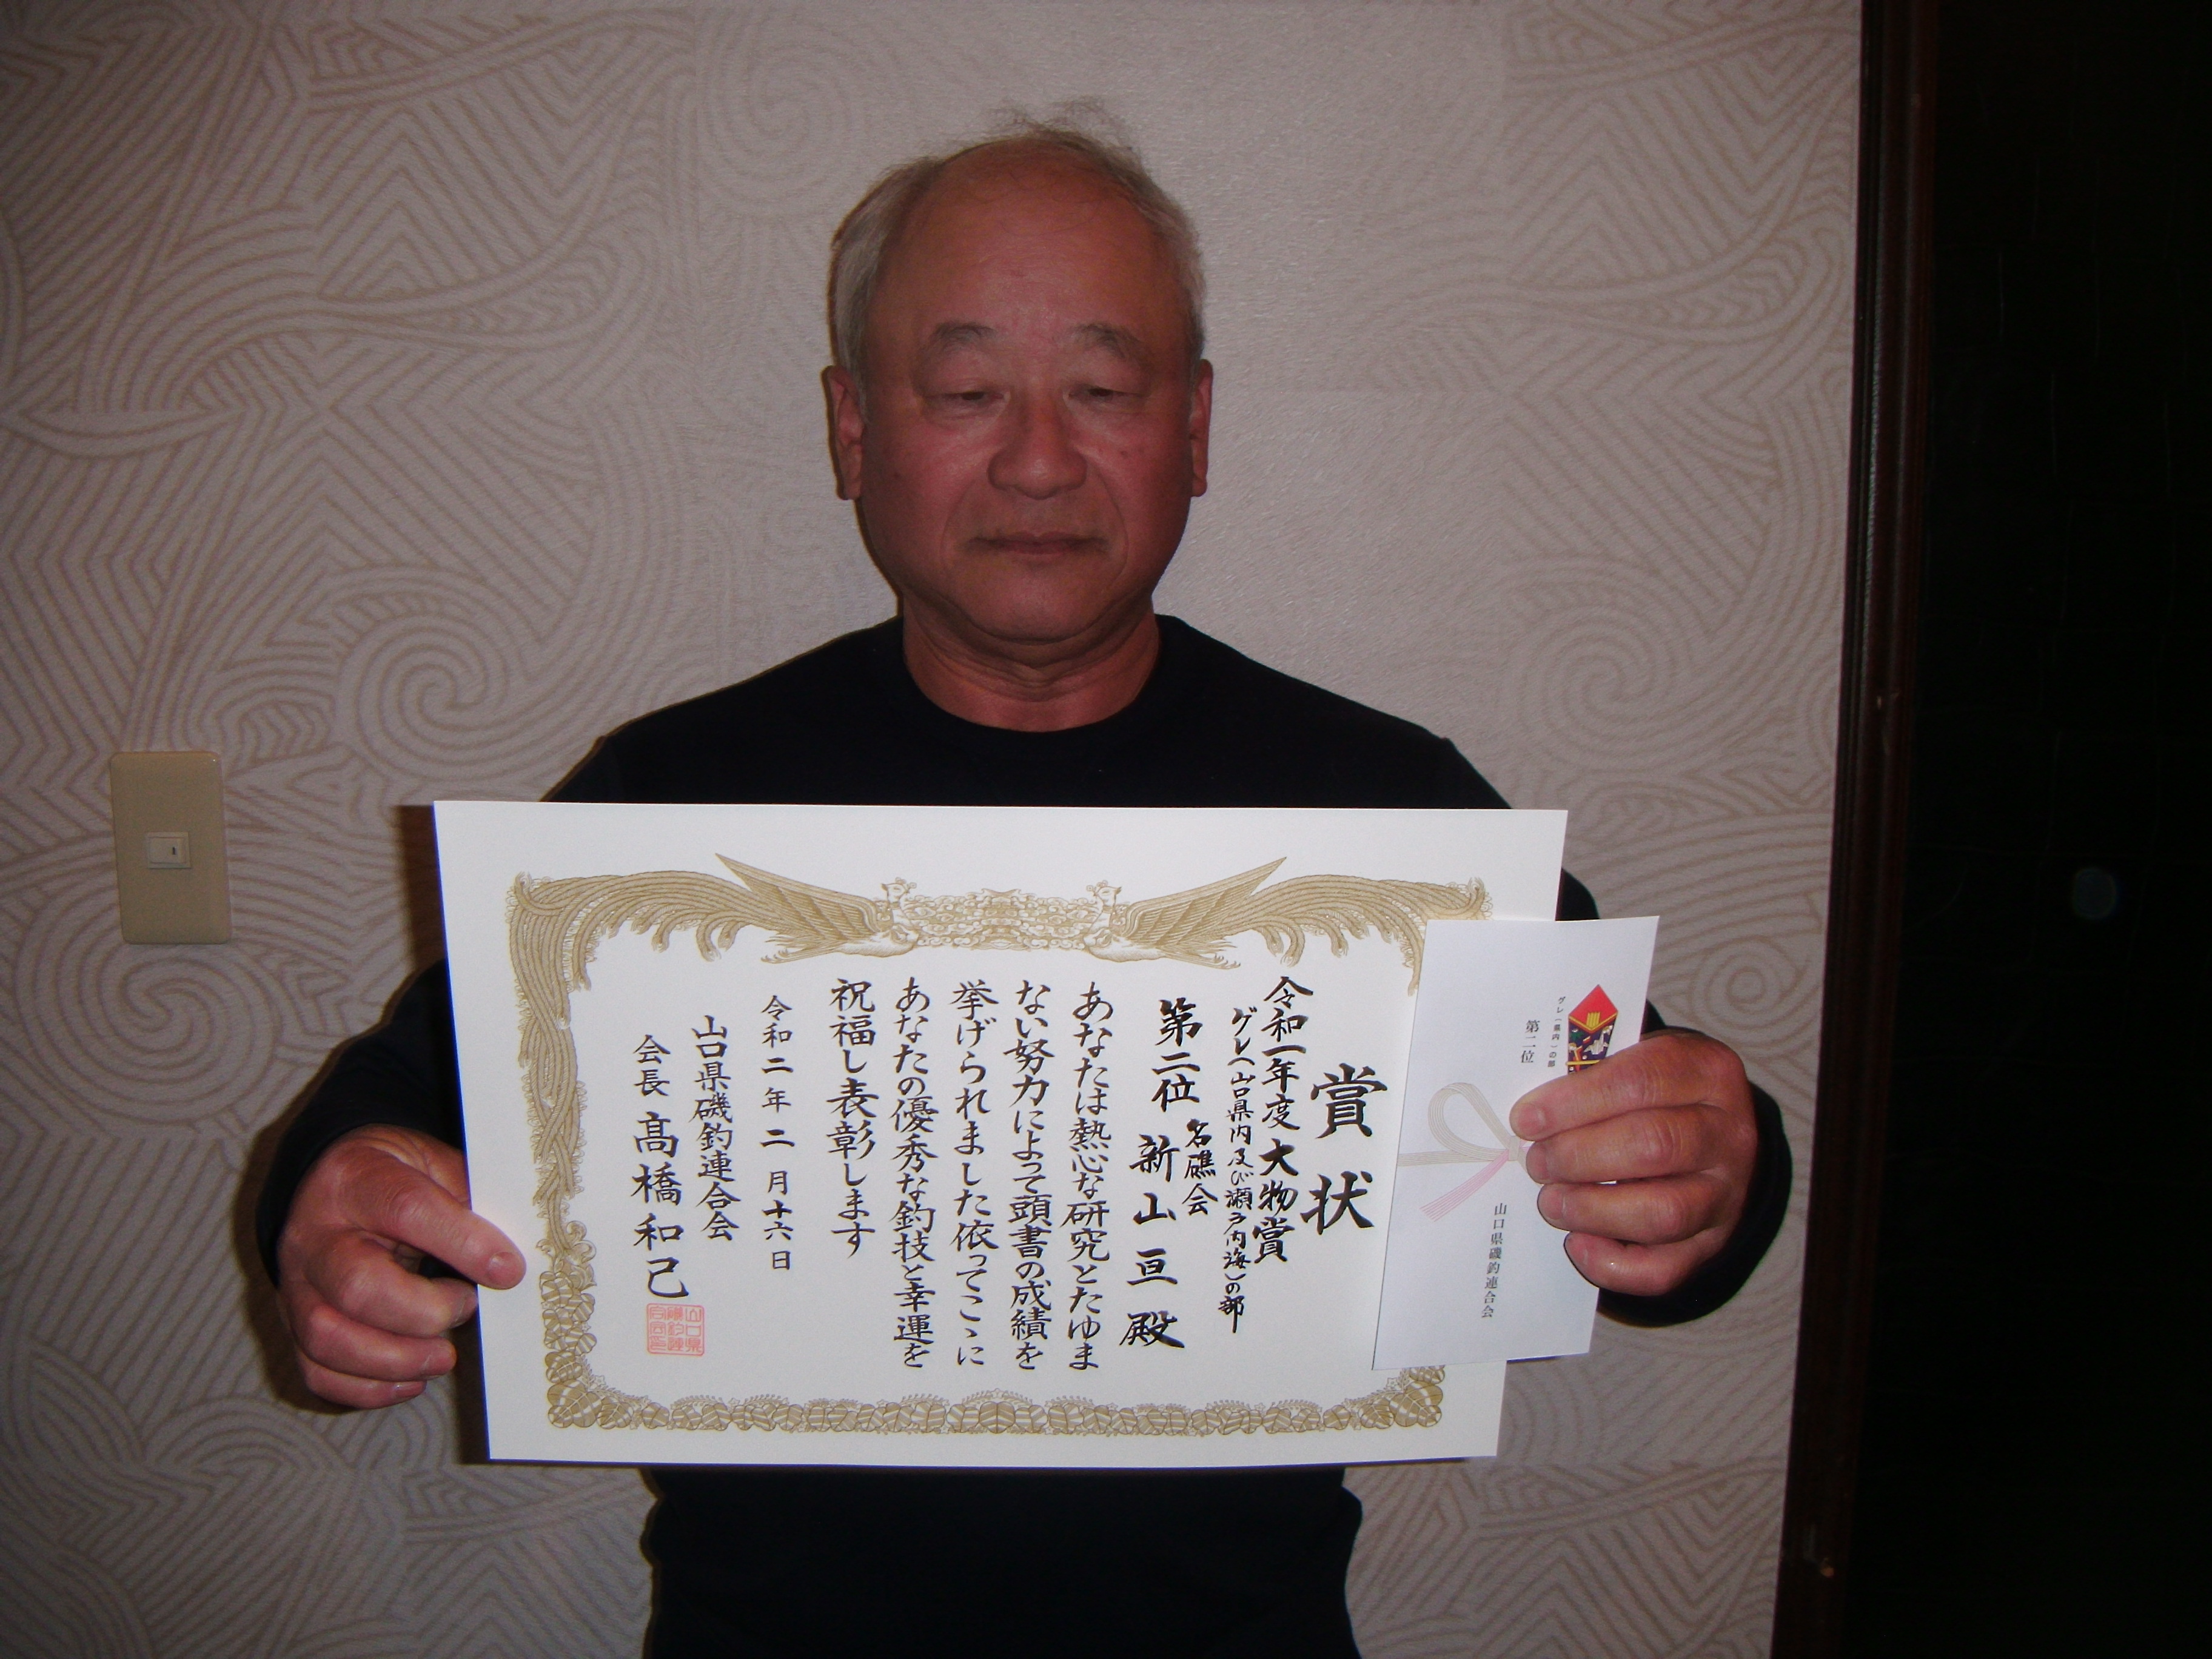 賞状
令和一年度大物賞
グレ(山口県内及び瀬戸内海)の部
名礁会
第二位 新山亘殿
あなたは熱心な研究とたゆま
ない努力によって頭書の成績を
挙げられました依ってこゝに
あなたの優秀な釣技と幸運を
祝福し表彰します
令和二年二月十六日
山口県磯釣連合会
会長 髙橋和己
グレ(県内)の部
第二位
山口県磯釣連合会